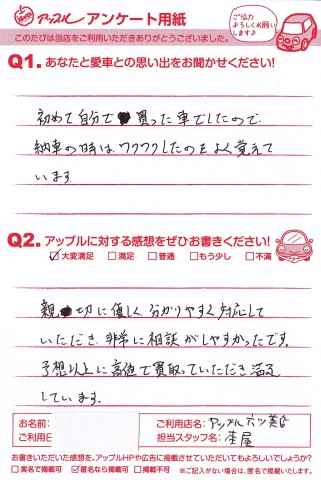 アップル アンケート用紙
ご協力
よろしくお願い
します♪
このたびは当店をご利用いただきありがとうございました。
Q1. あなたと愛車との思い出をお聞かせください!
初めて自分で買った車でしたので
納車の時はワクワクしたのをよく覚えて
います
Q2. アップルに対する感想をぜひお書きください!
☑大変満足 □満足 □普通 □もう少し □不満
親切に優しく分かりやすく対応して
いただき 非常に相談がしやすかったです。
予想以上に高値で買取っていただき満足
しています。
お名前:
ご利用店名:アップル六ツ美店
ご利用日
担当スタッフ名:
お書きいただいた感想を、アップルHPや広告に掲載させていただいてもよろしいでしょうか?
□実名で掲載可 ☑匿名なら掲載可 □掲載不可 ※ご記入がない場合は、匿名で掲載いたします。